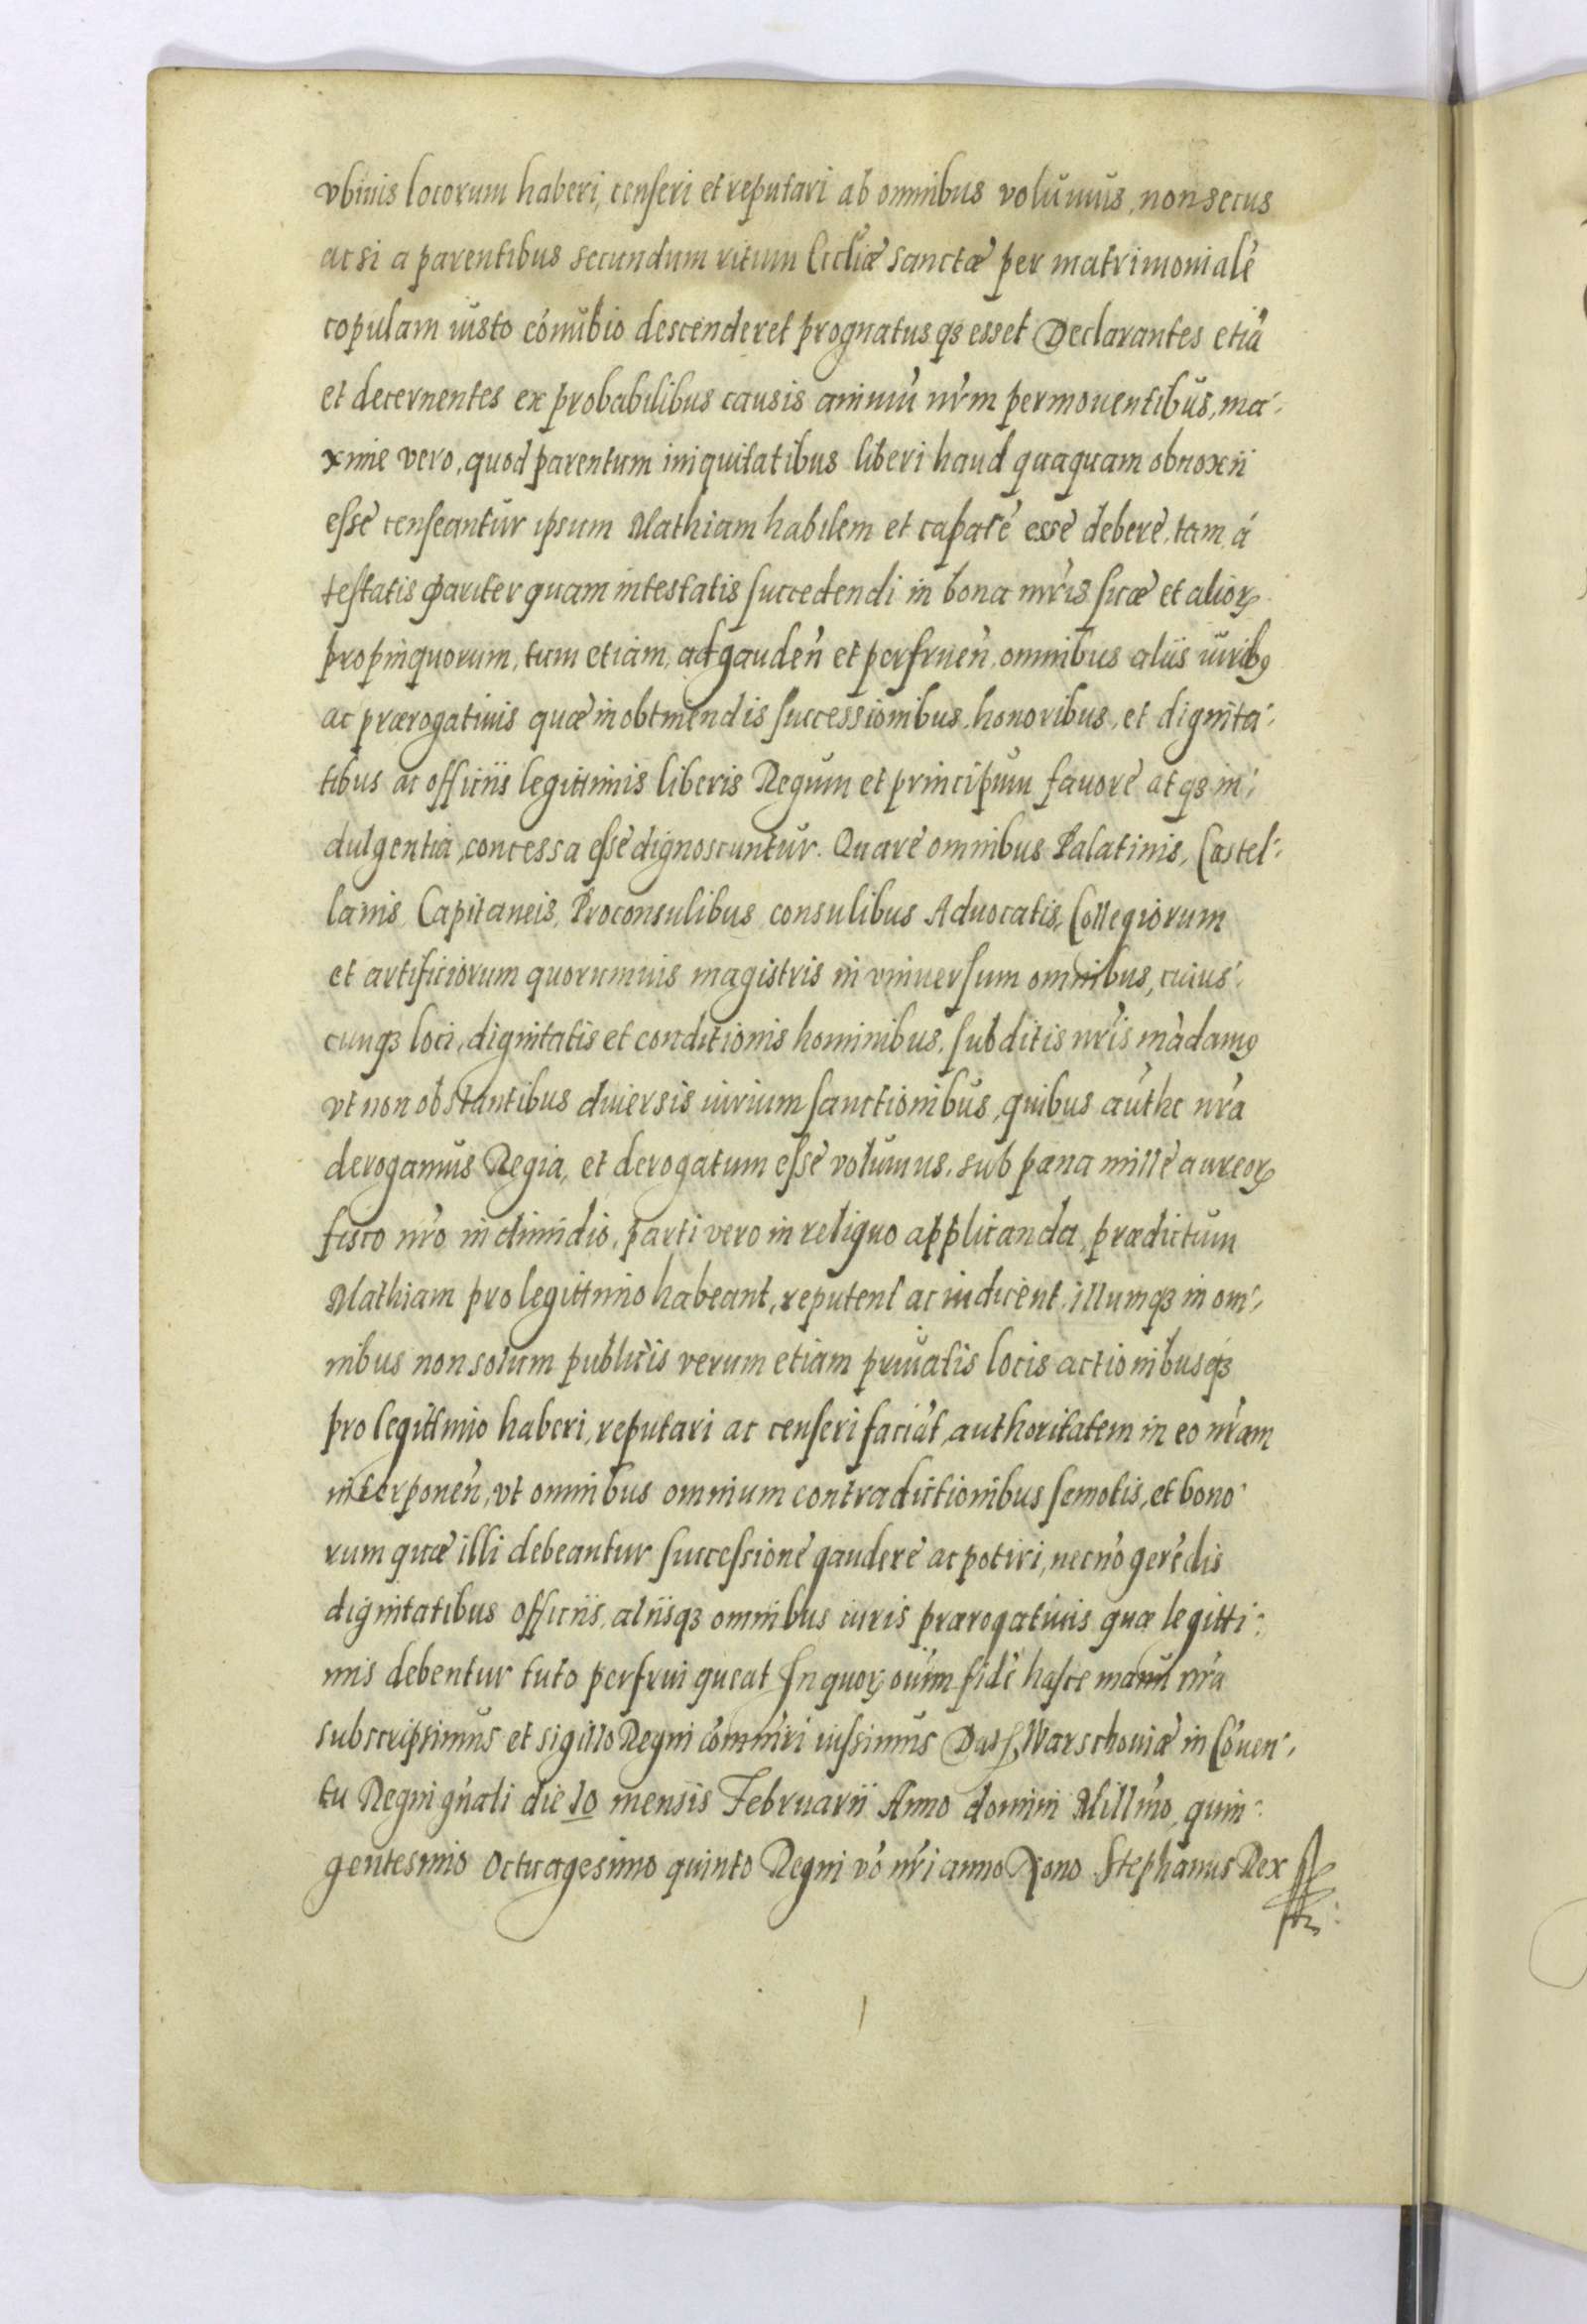 vbiuis locorum haberi, censeri et reputari ab omnibus volumus, non secus
ac si a parentibus secundum ritum Eccliæ sanctæ per matrimonialē
copulam iusto cōnubio descenderet prognatusqꝫ esset Declarantes etiā
et decernentes ex probabilibus causis animū nr̃m permouentibus, ma-
xime vero, quod parentum iniquitatibus liberi haud quaquam obnoxii
esse censeantur ipsum Mathiam habilem et capacē esse debere, tam á
testatis pariter quam intestatis succedendi in bona mr̃is suæ et alioꝝ
propinquorum, tum etiam, ad gauden̄ et perfruen̄, omnibus aliis iuribꝰ
ac prærogatiuis quæ in obtinendis successionibus, honoribus, et dignita-
tibus ac officiis legittimis liberis Regum et principum fauore atqꝫ in-
dulgentia, concessa esse dignoscuntur. Quare omnibus Palatinis, Castel-
lanis Capitaneis, Proconsulibus consulibus Aduocatis, Collegiorum
et artificiorum quorumuis magistris in vniuersum omnibus, cuius-
cunqꝫ loci, dignitatis et conditionis hominibus, subditis nr̃is mādamꝰ
vt non obstantibus diuersis iurium sanctionibus, quibus auth̃e nr̃a
derogamus Regia, et derogatum esse volumus, sub pæna mille aureoꝝ
fisco nr̃o in dimidio, parti vero in reliquo applicanda, prædictum
Mathiam pro legittimo habeant, reputent ac iudicent, illumqꝫ in om-
nibus non solum publicis verum etiam priuatis locis actionibusqꝫ
pro legittimo haberi, reputari ac censeri faciāt, authoritatem in eo nr̃am
interponen̄, vt omnibus omnium contradictionibus semotis, et bono-
rum quæ illi debeantur successione gaudere ac potiri, necnō gerēdis
dignitatibus officiis, aliisqꝫ omnibus iuris prærogatiuis quæ legitti-
mis debentur tuto perfrui queat In quoꝝ oīum fidē hasce manu nr̃a
subscripsimus et sigillo Regni cōmīri iussimus Dat, Warschouiæ in Cōuen-
tu Regni gn̄ali die 10 mensis Februarii Anno domini Mill̄mo, quin-
gentesimo Octuagesimo quinto Regni vō nr̃i anno Nono Stephanus Rex